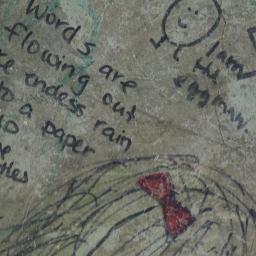 Words are
flowing out
endless rain
to a paper
I am
the
eggman.